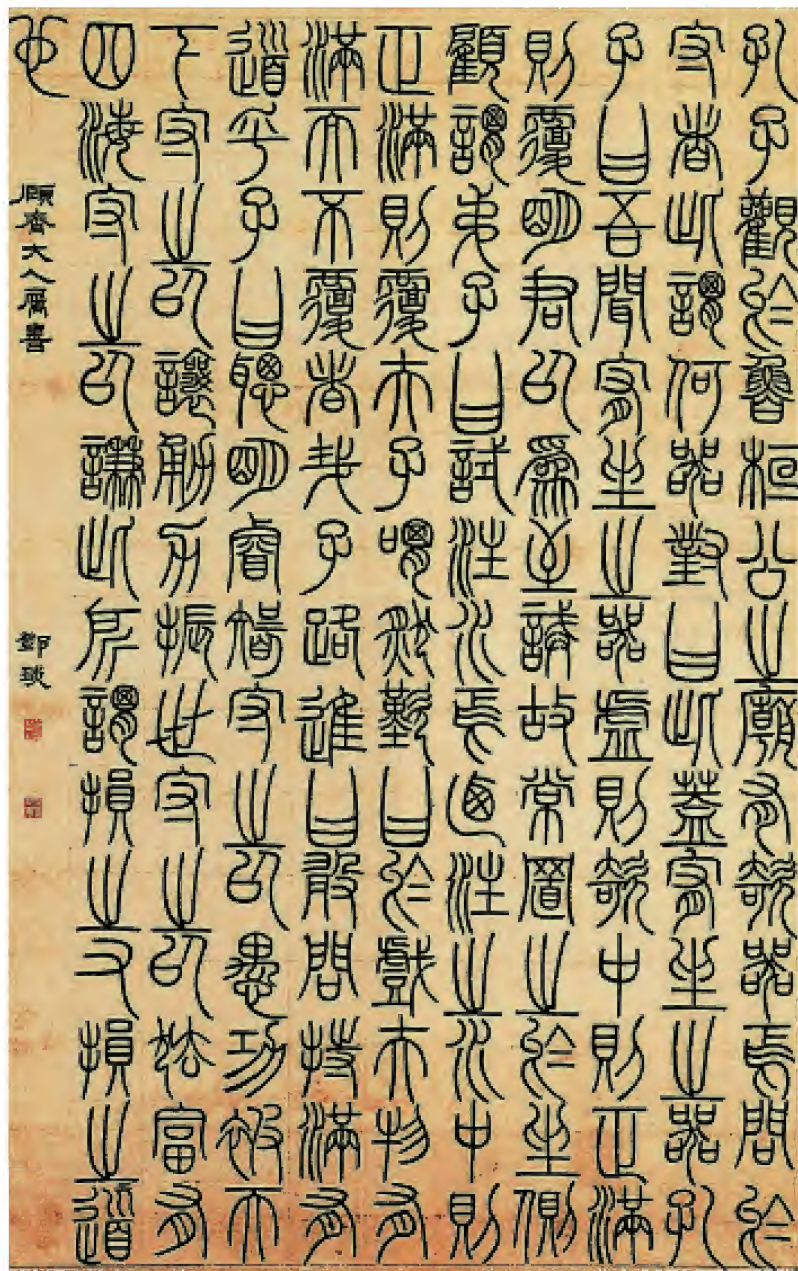 孔子觀於魯桓公之廟有欹器焉問於
守者此謂何器對曰此蓋宥坐之器孔
子曰吾聞宥坐之器虛則欹中則正滿
則覆明君以為至誠故常置之於坐側
顧謂弟子曰試注水焉乃注之水中則
正滿則覆夫子喟然歎曰於戲夫物有
滿而不覆者哉子路進曰敢問持滿有
道乎子曰聰明睿智守之以愚功被天
下守之以讓勇力振世守之以怯富有
四海守之以謙此所謂損之又損之道
也
齋大人属書
鄧琰